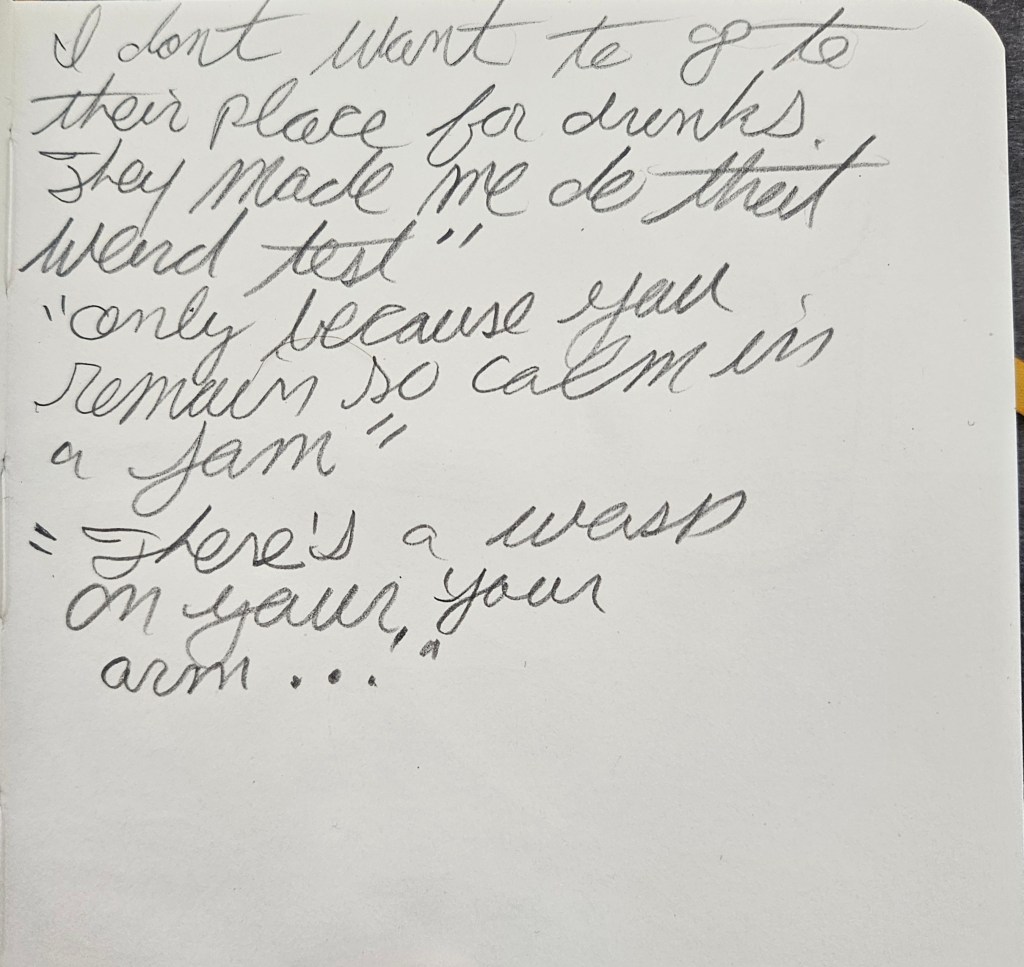 I dont want to go to
their place for drinks.
They made me do that
weird test"
"only because you
remain so calm in
a jam"
"There's a wasp
on your, your
arm..."